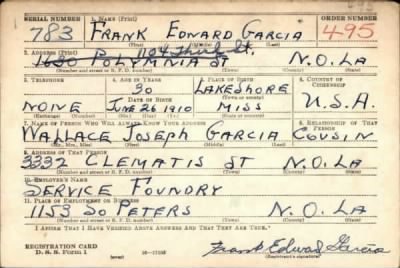 SERIAL NUMBER 1. NAME (Print) ORDER NUMBER
783 FRANK EDWARD GARCIA 495
(First) (Middle) (Last)
2. ADDRESS (Print) 1104 Third St.
1630 POLYMNIA ST N.O. LA
(Number and street or R. F. D. number) (Town) (County) (State)
3. TELEPHONE 4. AGE IN YEARS 5. PLACE OF BIRTH 6. COUNTRY OF CITIZENSHIP
30 LAKESHORE
DATE OF BIRTH (Town or county)
NONE JUNE 26 1910 MISS U.S.A.
(Exchange) (Number) (Mo.) (Day) (Yr.) (State or country)
7. NAME OF PERSON WHO WILL ALWAYS KNOW YOUR ADDRESS 8. RELATIONSHIP OF THAT PERSON
WALLACE JOSEPH GARCIA COUSIN
(Mr., Mrs., Miss) (First) (Middle) (Last)
9. ADDRESS OF THAT PERSON
3332 CLEMATIS ST N.O. LA
(Number and street or R. F. D. number) (Town) (County) (State)
10. EMPLOYER'S NAME
SERVICE FOUNDRY
11. PLACE OF EMPLOYMENT OR BUSINESS
1153 SO PETERS N.O. LA
(Number and street or R. F. D. number) (Town) (County) (State)
I AFFIRM THAT I HAVE VERIFIED ABOVE ANSWERS AND THAT THEY ARE TRUE.
REGISTRATION CARD
D. S. S. Form 1 Frank Edward Garcia
(Registrant's signature)